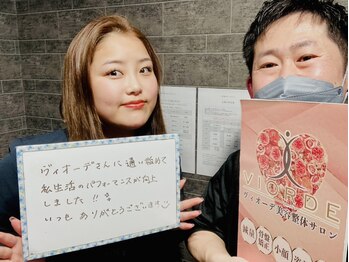 ヴィオーデさんに通い始めて
私生活のパフォーマンスが向上
しました!!
いつもありがとうございます
VIORDE
ヴィオーデ美容整体サロン
減量
骨盤矯正
小顔